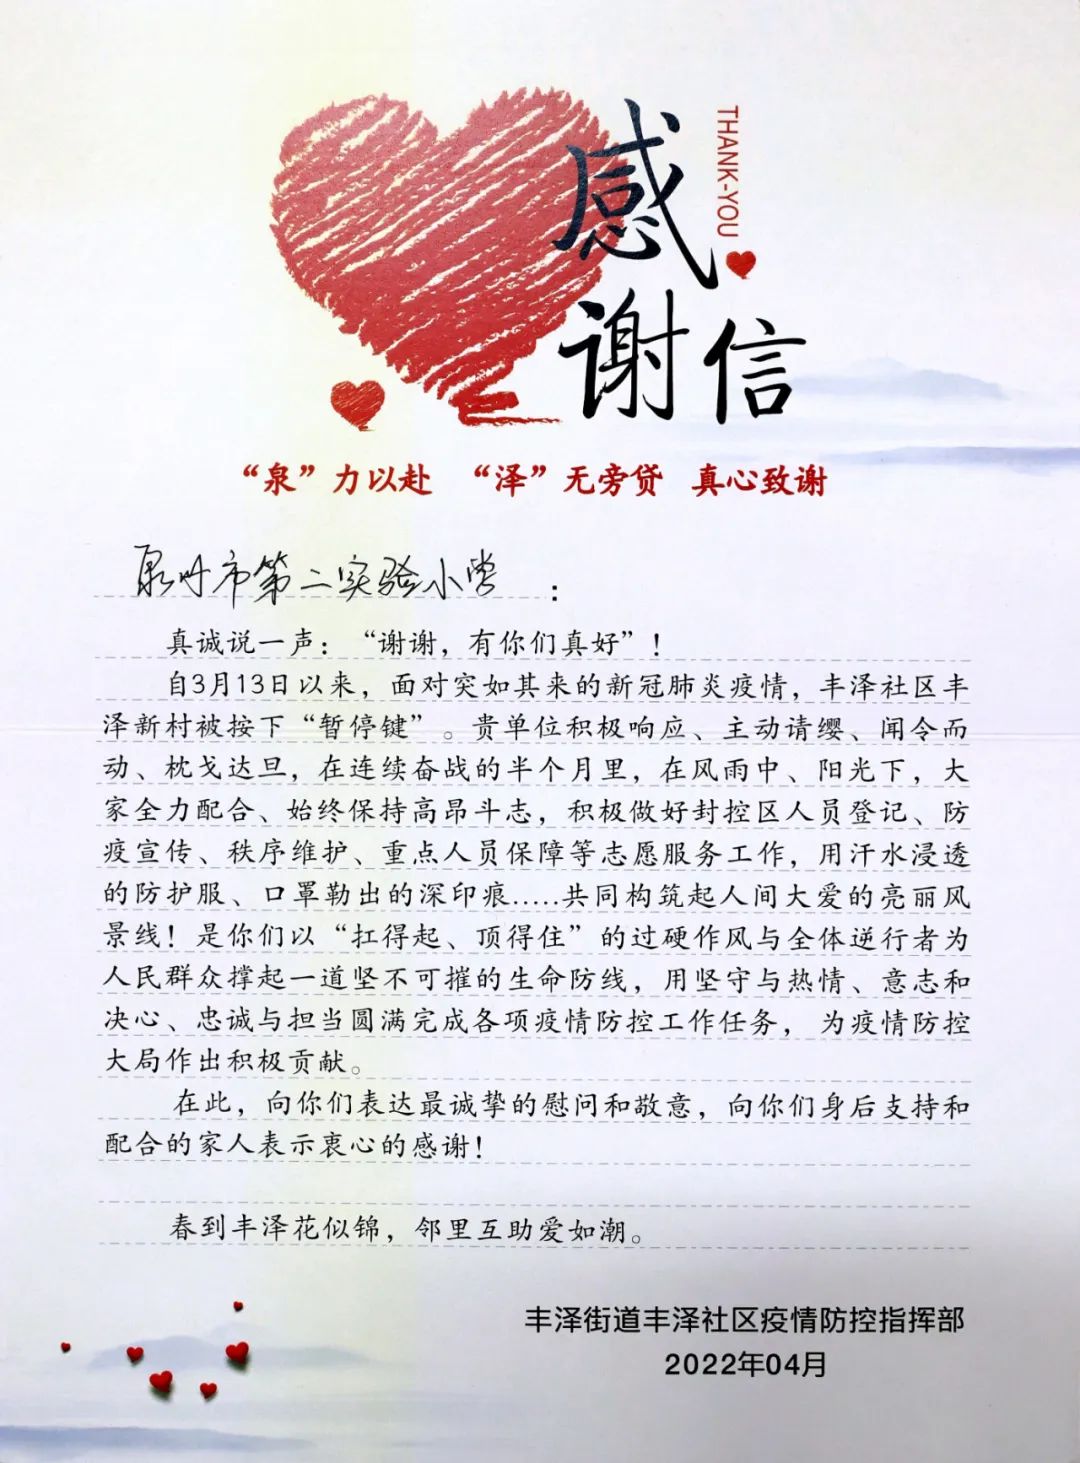 感
THANK-YOU
谢信
“泉”力以赴 “泽”无旁贷 真心致谢
泉州市第二实验小学：
真诚说一声：“谢谢，有你们真好”！
自3月13日以来，面对突如其来的新冠肺炎疫情，丰泽社区丰
泽新村被按下“暂停键”。贵单位积极响应、主动请缨、闻令而
动、枕戈达旦，在连续奋战的半个月里，在风雨中、阳光下，大
家全力配合、始终保持高昂斗志，积极做好封控区人员登记、防
疫宣传、秩序维护、重点人员保障等志愿服务工作，用汗水浸透
的防护服、口罩勒出的深印痕.....共同构筑起人间大爱的亮丽风
景线！是你们以“扛得起、顶得住”的过硬作风与全体逆行者为
人民群众撑起一道坚不可摧的生命防线，用坚守与热情、意志和
决心、忠诚与担当圆满完成各项疫情防控工作任务，为疫情防控
大局作出积极贡献。
在此，向你们表达最诚挚的慰问和敬意，向你们身后支持和
配合的家人表示衷心的感谢！
春到丰泽花似锦，邻里互助爱如潮。
丰泽街道丰泽社区疫情防控指挥部
2022年04月